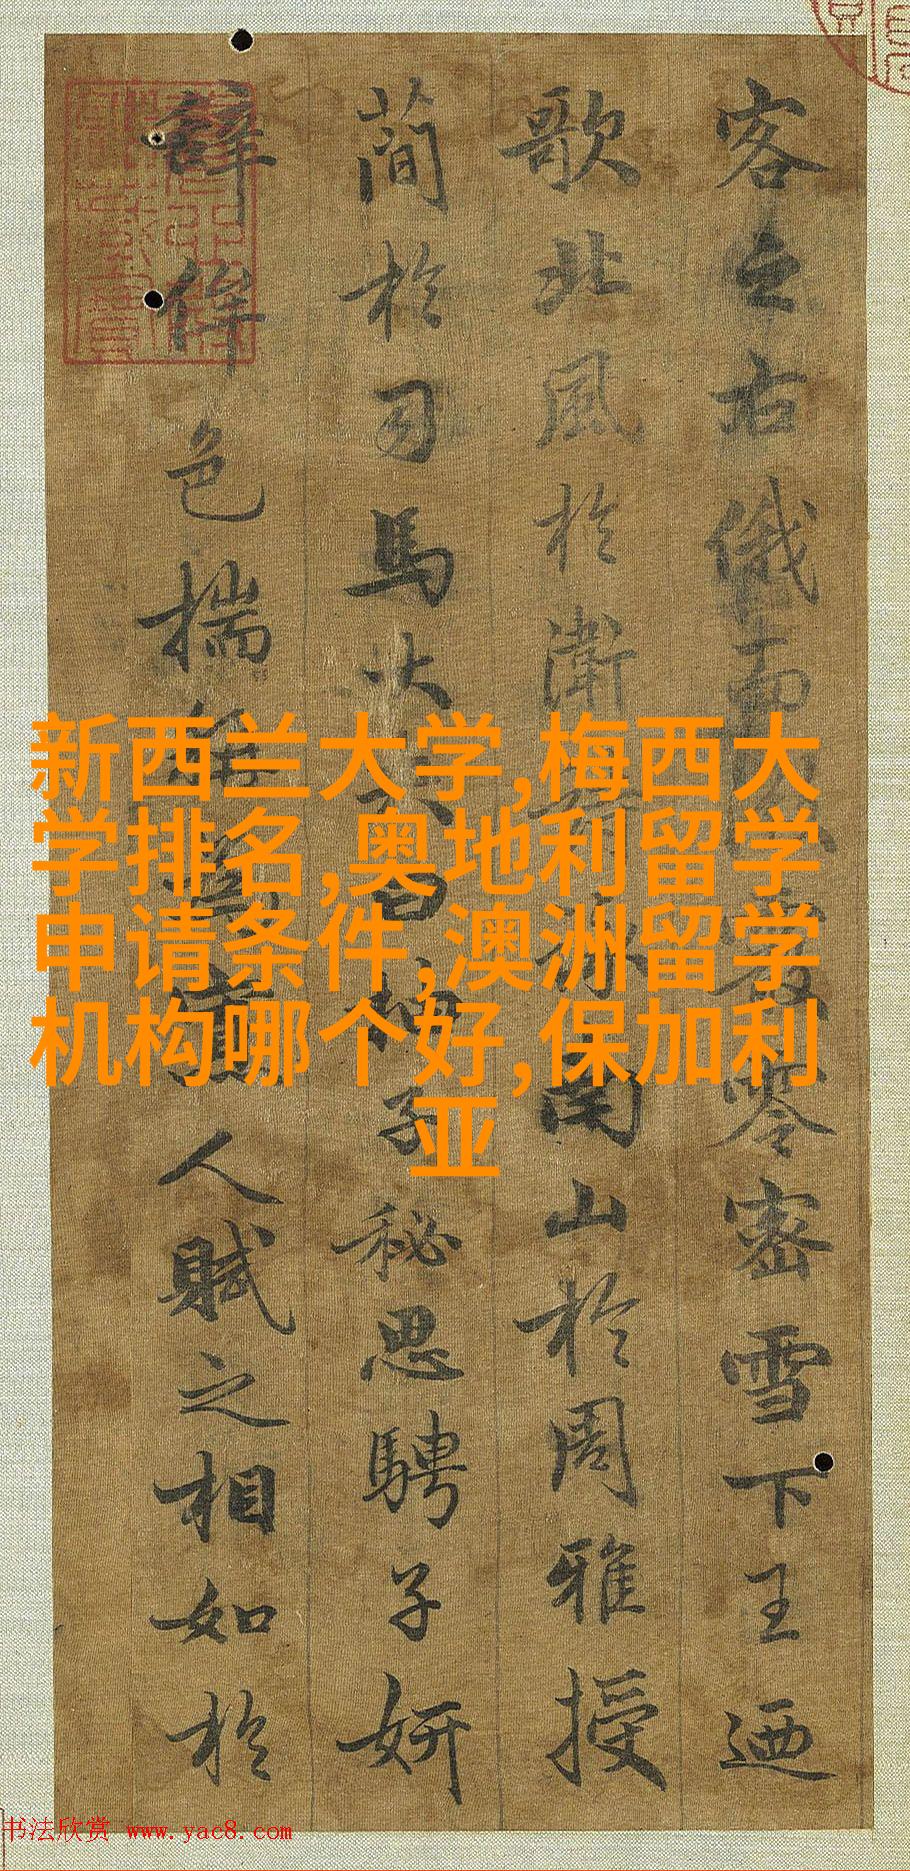 客之右俄而零密雪下王迺
歌北風於衛詠南山於周雅授
簡於司馬大夫曰抽子秘思騁子妍
辭侔色揣稱寡人賦之相如於
新西兰大学,梅西大
学排名,奥地利留学
申请条件,澳洲留学
机构哪个好,保加利
亚
书法欣赏 www.yac8.com